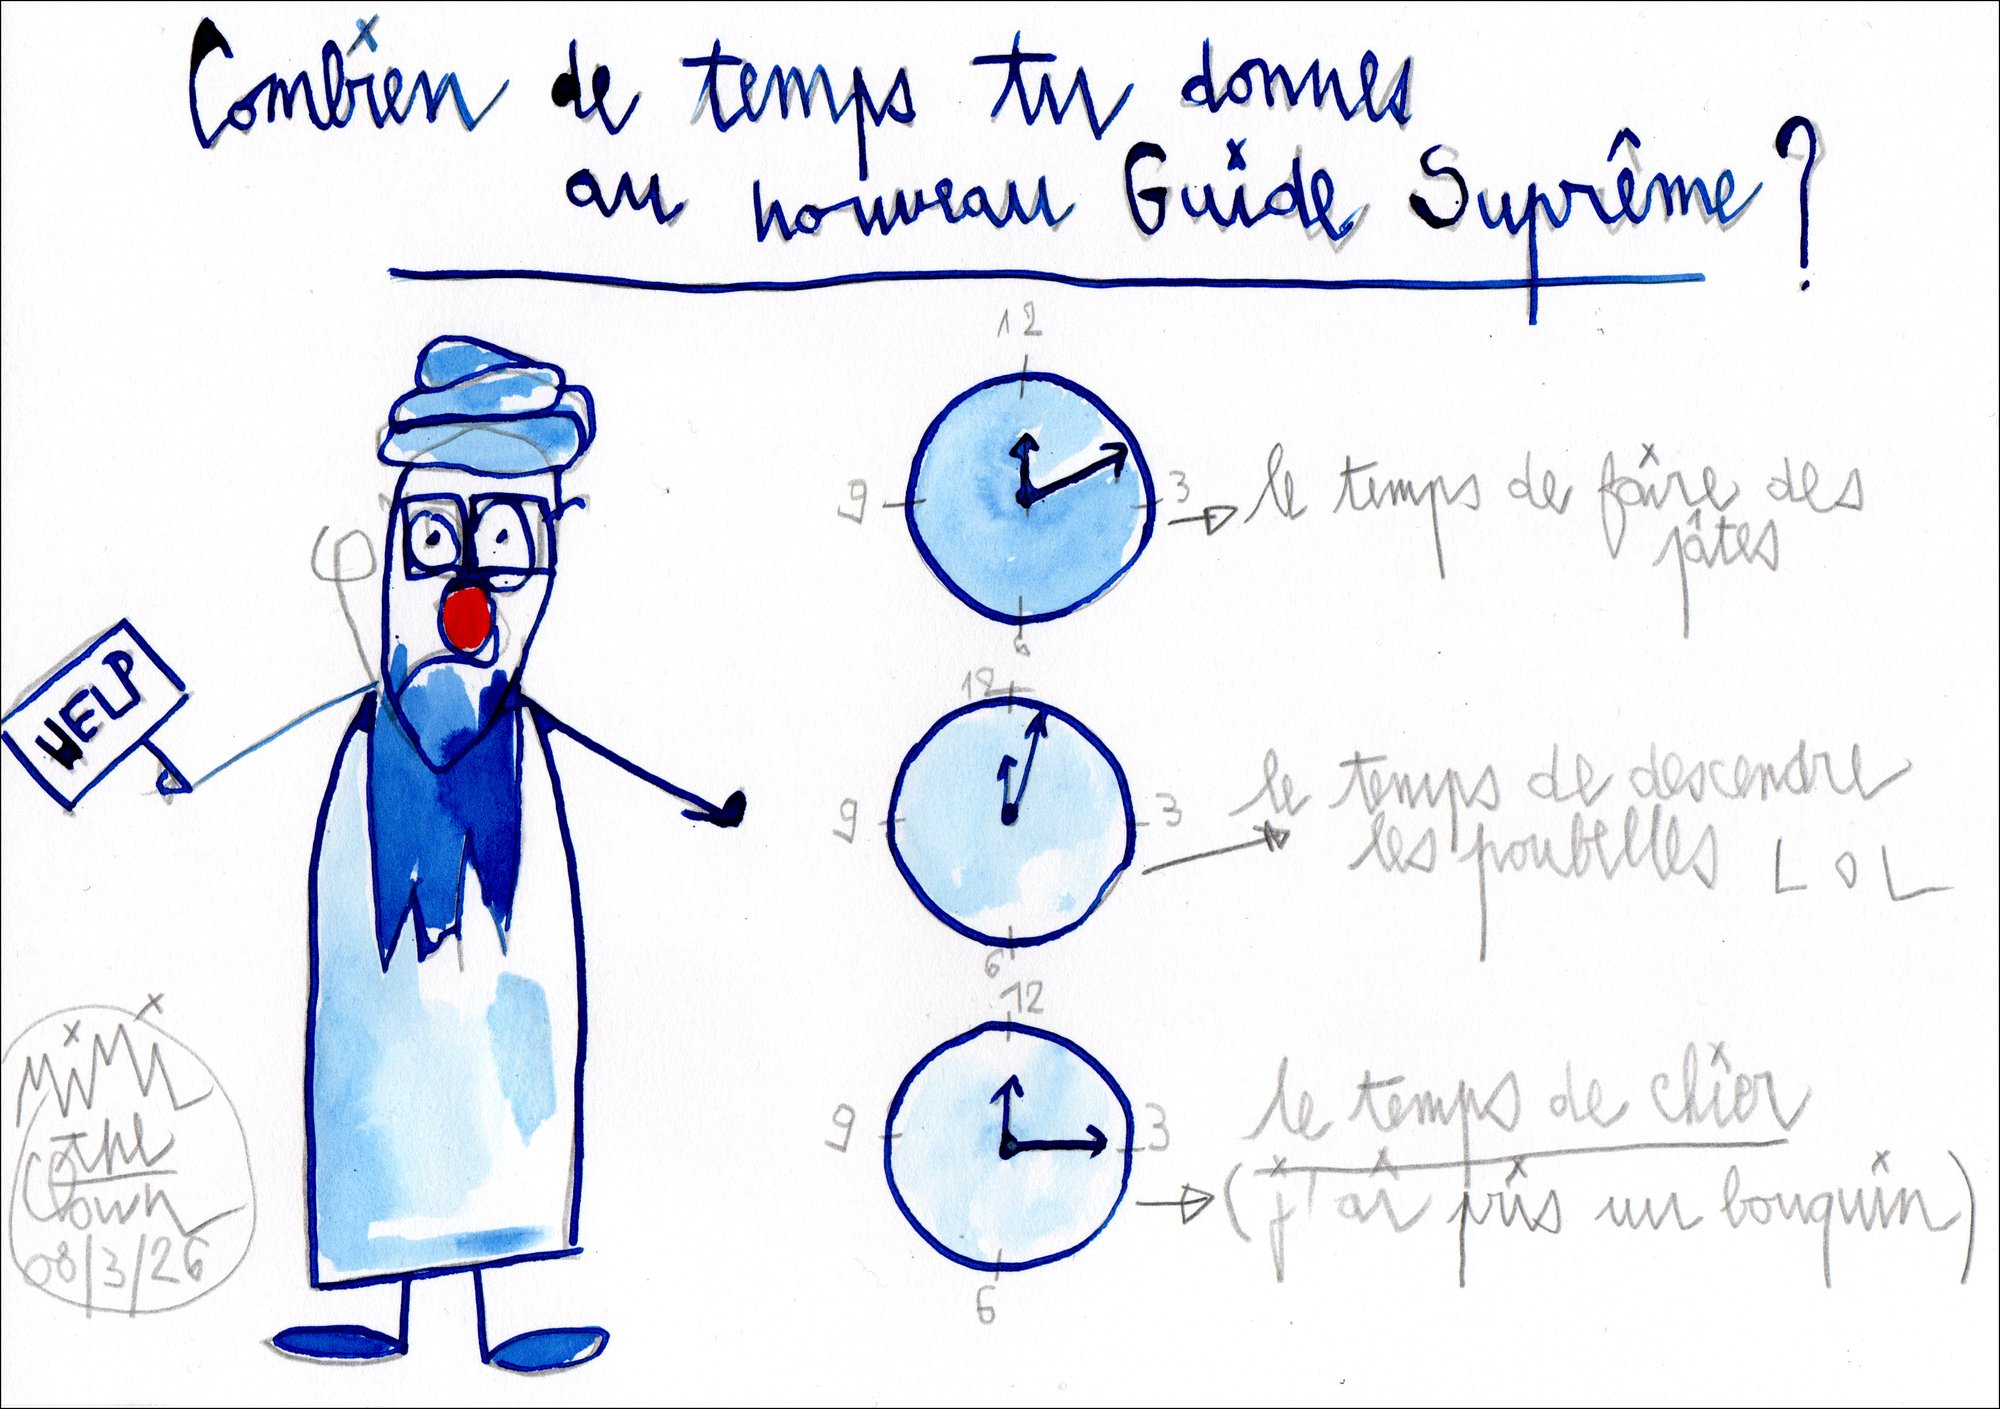 Combien de temps tu donnes
au nouveau Guide Suprême ?
HELP
12
9
3
6
le temps de faire des
pâtes
12
9
3
6
le temps de descendre
les poubelles LOL
12
9
3
6
le temps de chier
(j'ai pris un bouquin)
MiMi
the
Clown
08/3/26